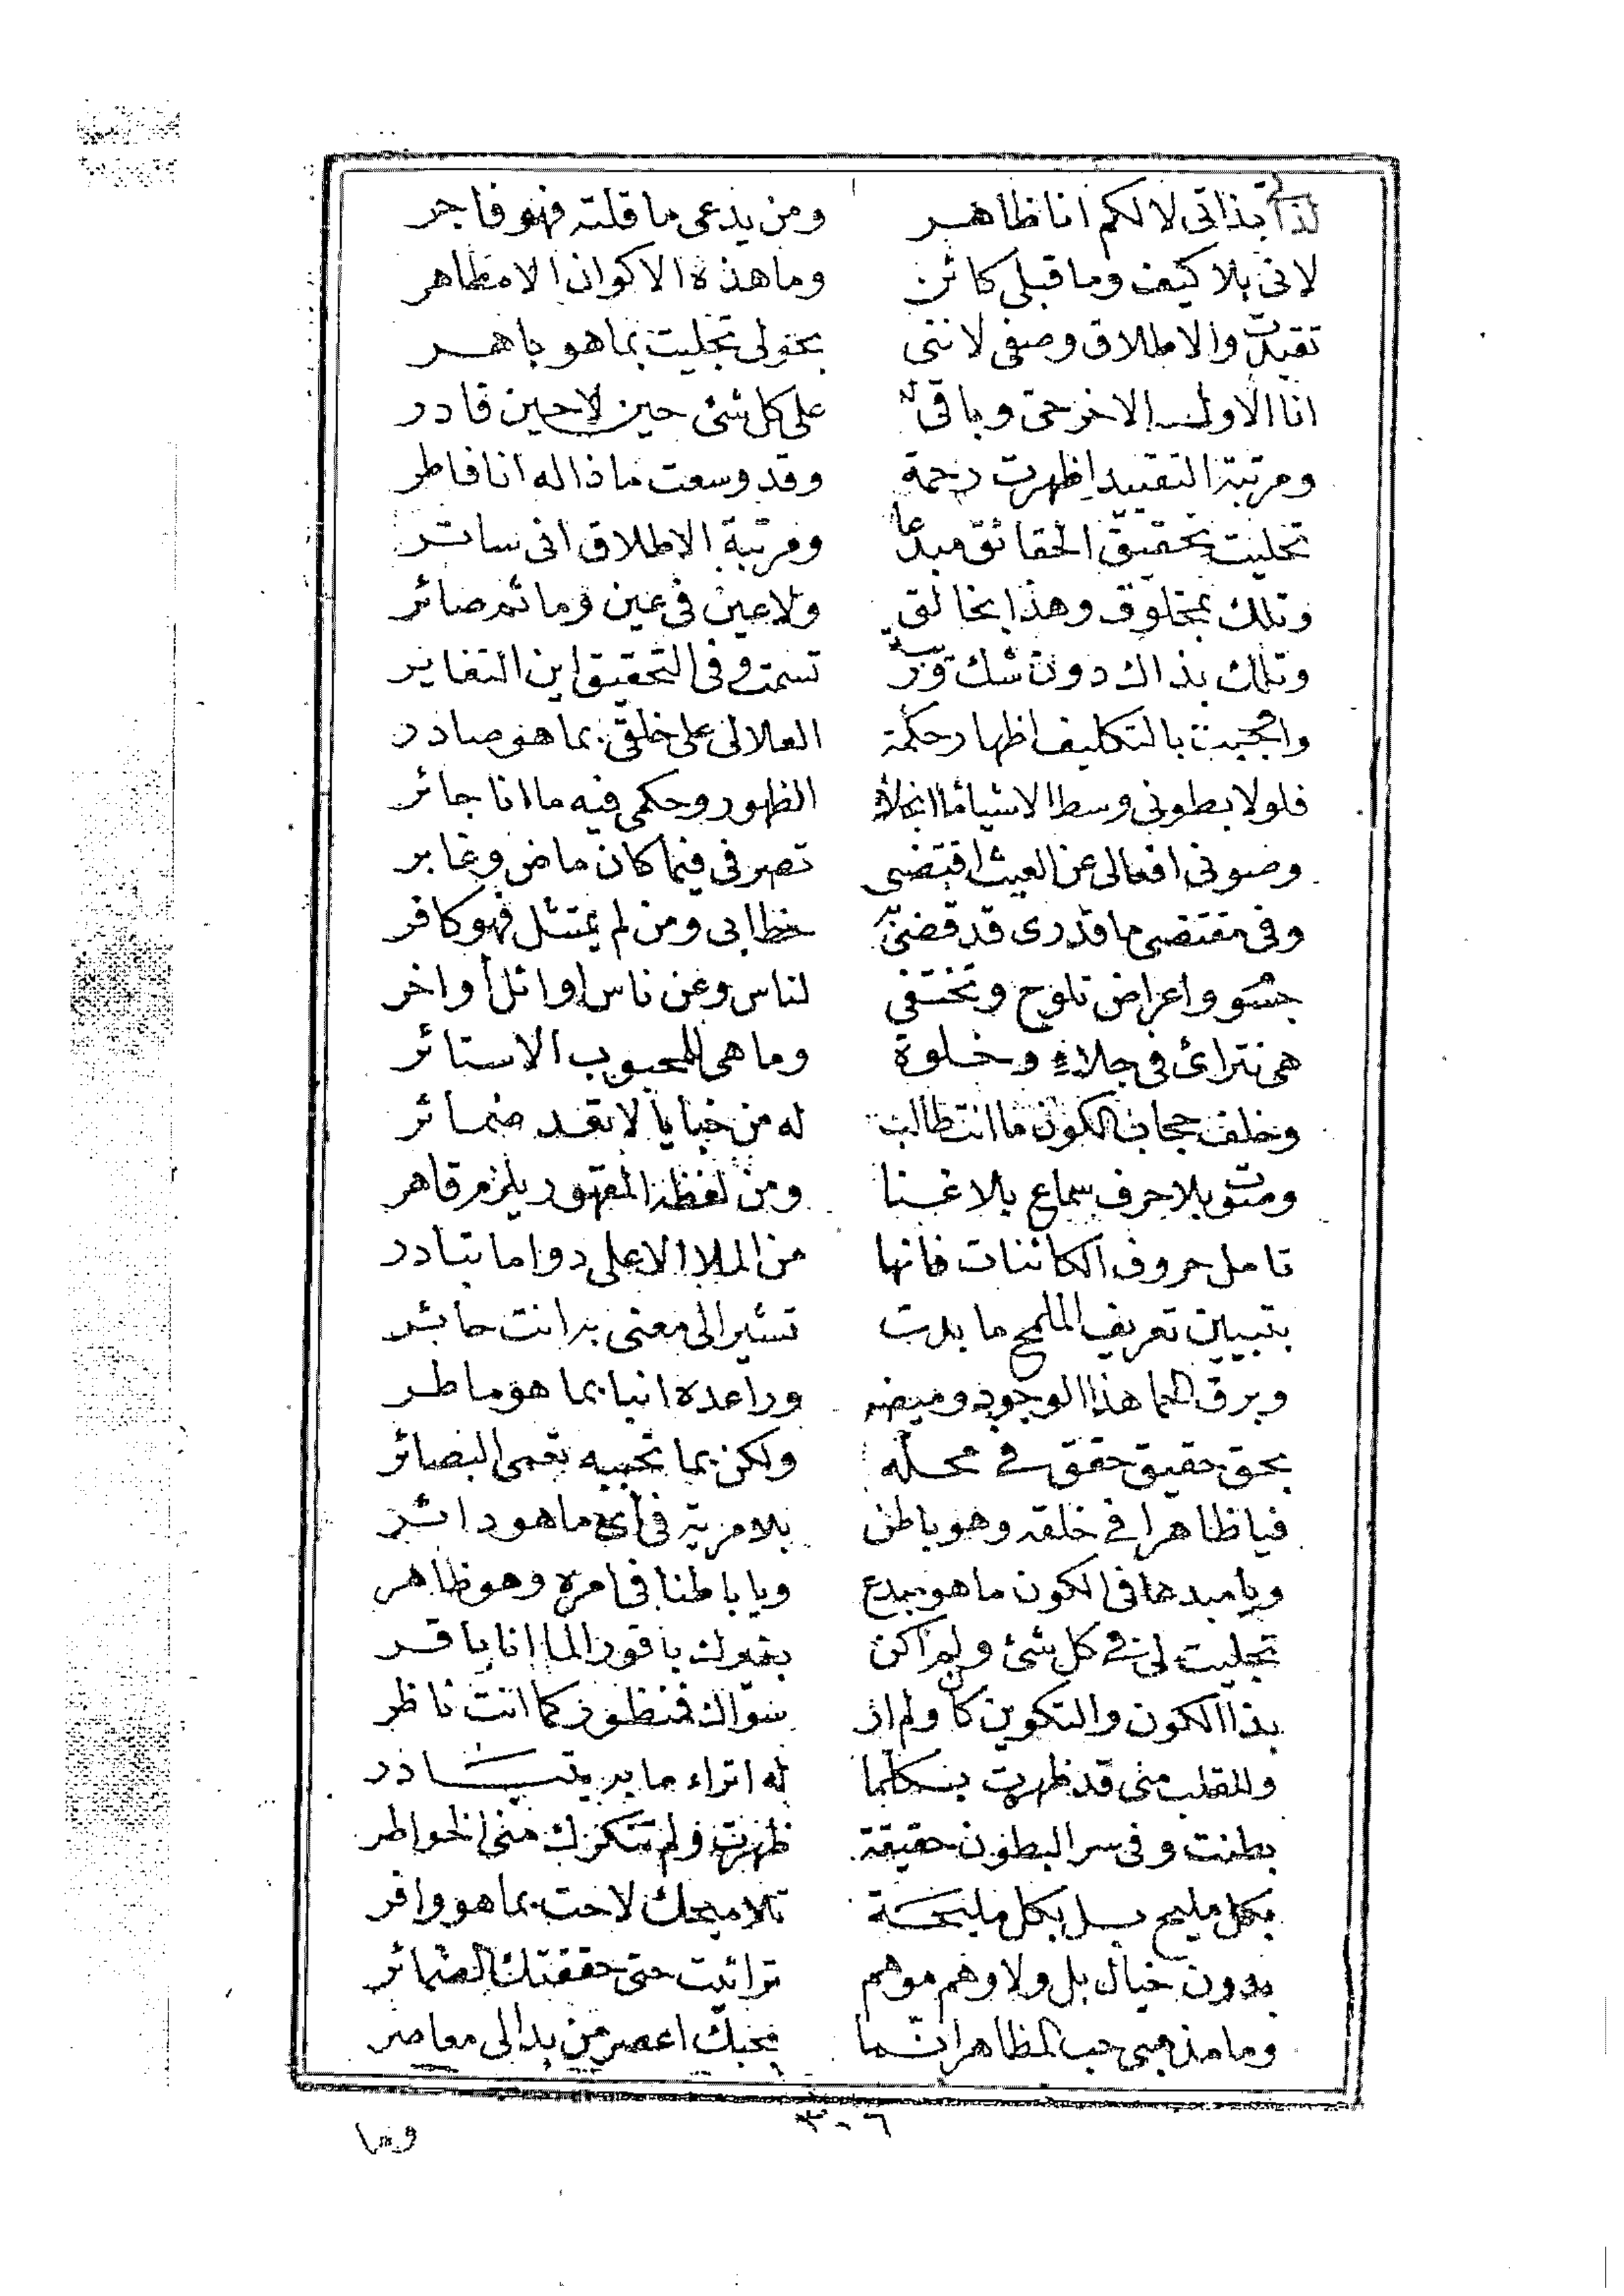 لذاتي بذاتي لا لكم انا ظاهر ومن يدعي ما قلته فهو فاجر
لاني بلا كيف وما قبلي كائن وما هذه الاكوان الا مظاهر
تقيدت والاطلاق وصفي لانني بحولي تجليت بما هو باهر
انا الاول الاخر حق وباقي على كل شئ حين لا حين قادر
ومرتبة التقييد اظهرت رحمة وقد وسعت ماذا له انا فاطر
تجليت بتحقيق الحقائق مبدعا ومرتبة الاطلاق اني ساتر
وتلك بمخلوق وهذا بخالق ولا عين في عين وما ثم صائر
وتلك بذاك دون شك تسمت وفي التحقيق اين التغاير
بالتكليف اظهار حكمة العلا لي على خلقي بما هو صادر
فلولا بطوني وسط الاشيا ما انجلا الظهور وحكمي فيه ما انا جائر
وصوني افعالي عن العبث اقتضى تصرفي فيما كان ماض وغابر
وفي مقتضى ما قدري قد قضى خطابي ومن لم يمتثل فهو كافر
واعراض تلوح وتختفي لناس وعن ناس اوائل أواخر
هي تترائ في جلاء وخلوة وما هي للمحبوب الا ستائر
وخلف حجاب الكون ما انت طالب له من خبايا لا ضمائر
بلا حرف سماع بلا غنا ومن لفظة المقهور يلزم قاهر
تامل حروف الكائنات فانها من الملا الاعلى دواما تبادر
بتبيين تعريف الملمح ما بدت تشير الى معنى به انت حائر
وبرق الحما هذا الوجود وميضه وراعده انبا بما هو ماطر
بحق حقيق حقق في محله ولكن بما تعمى البصائر
فيا ظاهرا في خلقه وهو باطن بلا مرية في اي ما هو دائر
ويا مبدها في الكون ما هو مبدع ويا باطنا في امره وهو ظاهر
تجليت لي في كل شئ ولم اكن بغيرك انا باقر
بذا الكون والتكوين كان ولم از سواك كما انت ناظر
وللقلب مني قد ظهرت له اتراء ما به
بطنت وفي سر البطون حقيقة ظهرت ولم تنكرك مني الخواطر
بكل مليح بل بكل مليحة تلاميحك لاحت بما هو وافر
بدون خيال بل ولا وهم موهم ترائيت حتى حققتك الضمائر
وما مذهبي حب المظاهر انما بحبك من بدا لي معاصر
٣٠٦
وما